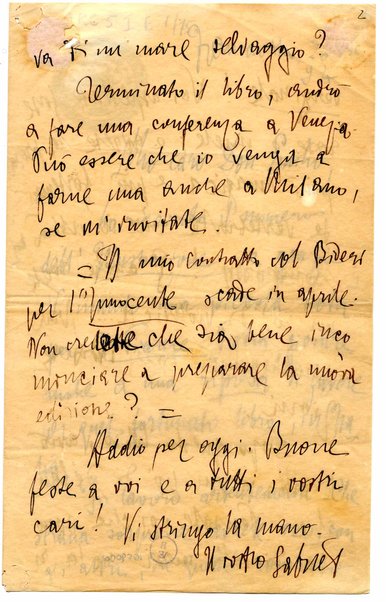 2
va di un mare selvaggio?
Terminato il libro, andrò
a fare una conferenza a Venezia.
Può essere che io venga a
farne una anche a Milano,
se m'invitate.
= Il mio contratto col Bideri
per l'"Innocente scade in aprile.
Non credete che sia bene inco
minciare a preparare la nuova
edizione? =
Addio per oggi. Buone
feste a voi e a tutti i vostri
cari! Vi stringo la mano.
Il vostro Gabriel